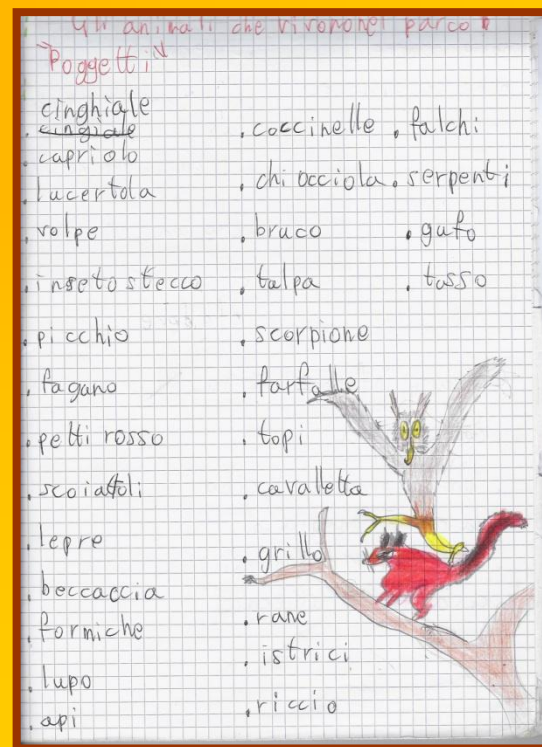 Gli animali che vivono nel parco i
"Poggetti"
cinghiale
. cingiale
. capriolo
. lucertola
. volpe
. inseto stecco
. picchio
. fagano
. petti rosso
. scoiattoli
. lepre
. beccaccia
. formiche
. lupo
. api
. coccinelle
. chiocciola
. bruco
. talpa
. scorpione
. farfalle
. topi
. cavalletta
. grillo
. rane
. istrici
. riccio
. falchi
. serpenti
. gufo
. tasso